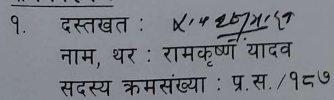 १. दस्तखत :
नाम, थर : रामकृष्ण यादव
सदस्य क्रमसंख्या : प्र.स./१८७